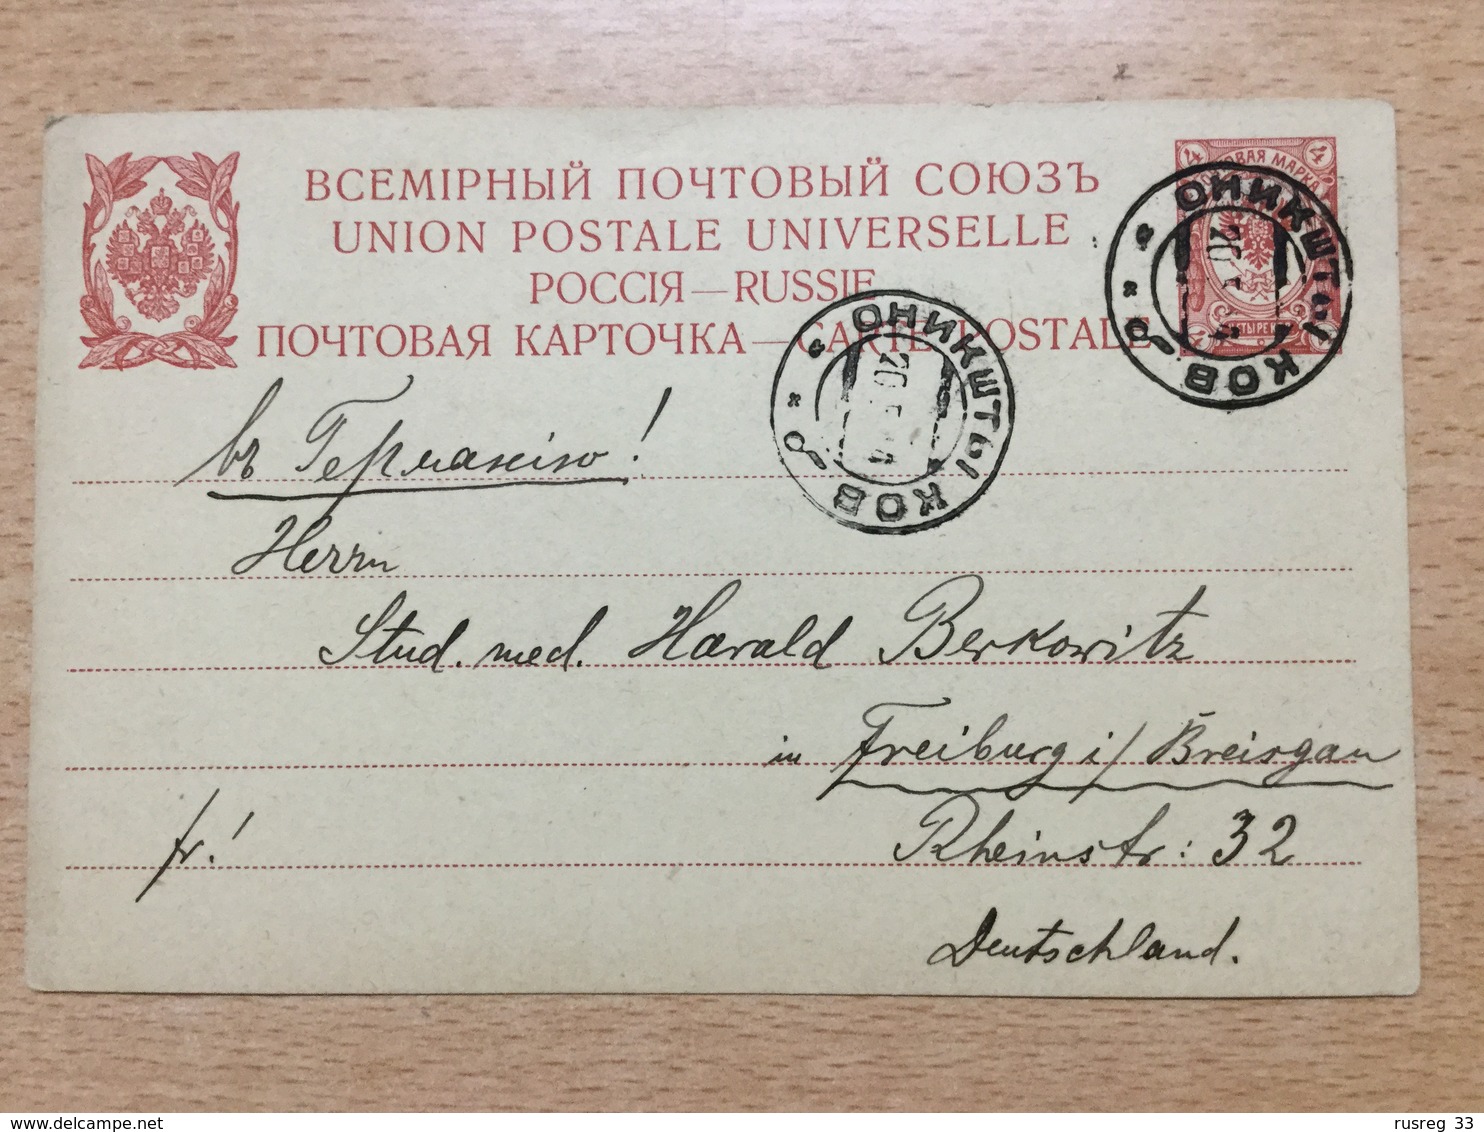 ВСЕМІРНЫЙ ПОЧТОВЫЙ СОЮЗЪ
UNION POSTALE UNIVERSELLE
РОССІЯ — RUSSIE
ПОЧТОВАЯ КАРТОЧКА — CARTE POSTALE
4 МАРКА 4
ОНИКШТЫ КОВ
ОНИКШТЫ КОВ
въ Германію!
Herrn
Stud. med. Harald Berkowitz
in Freiburg i/Breisgau
fr.! Rheinstr: 32
Deutschland.
rusreg 33